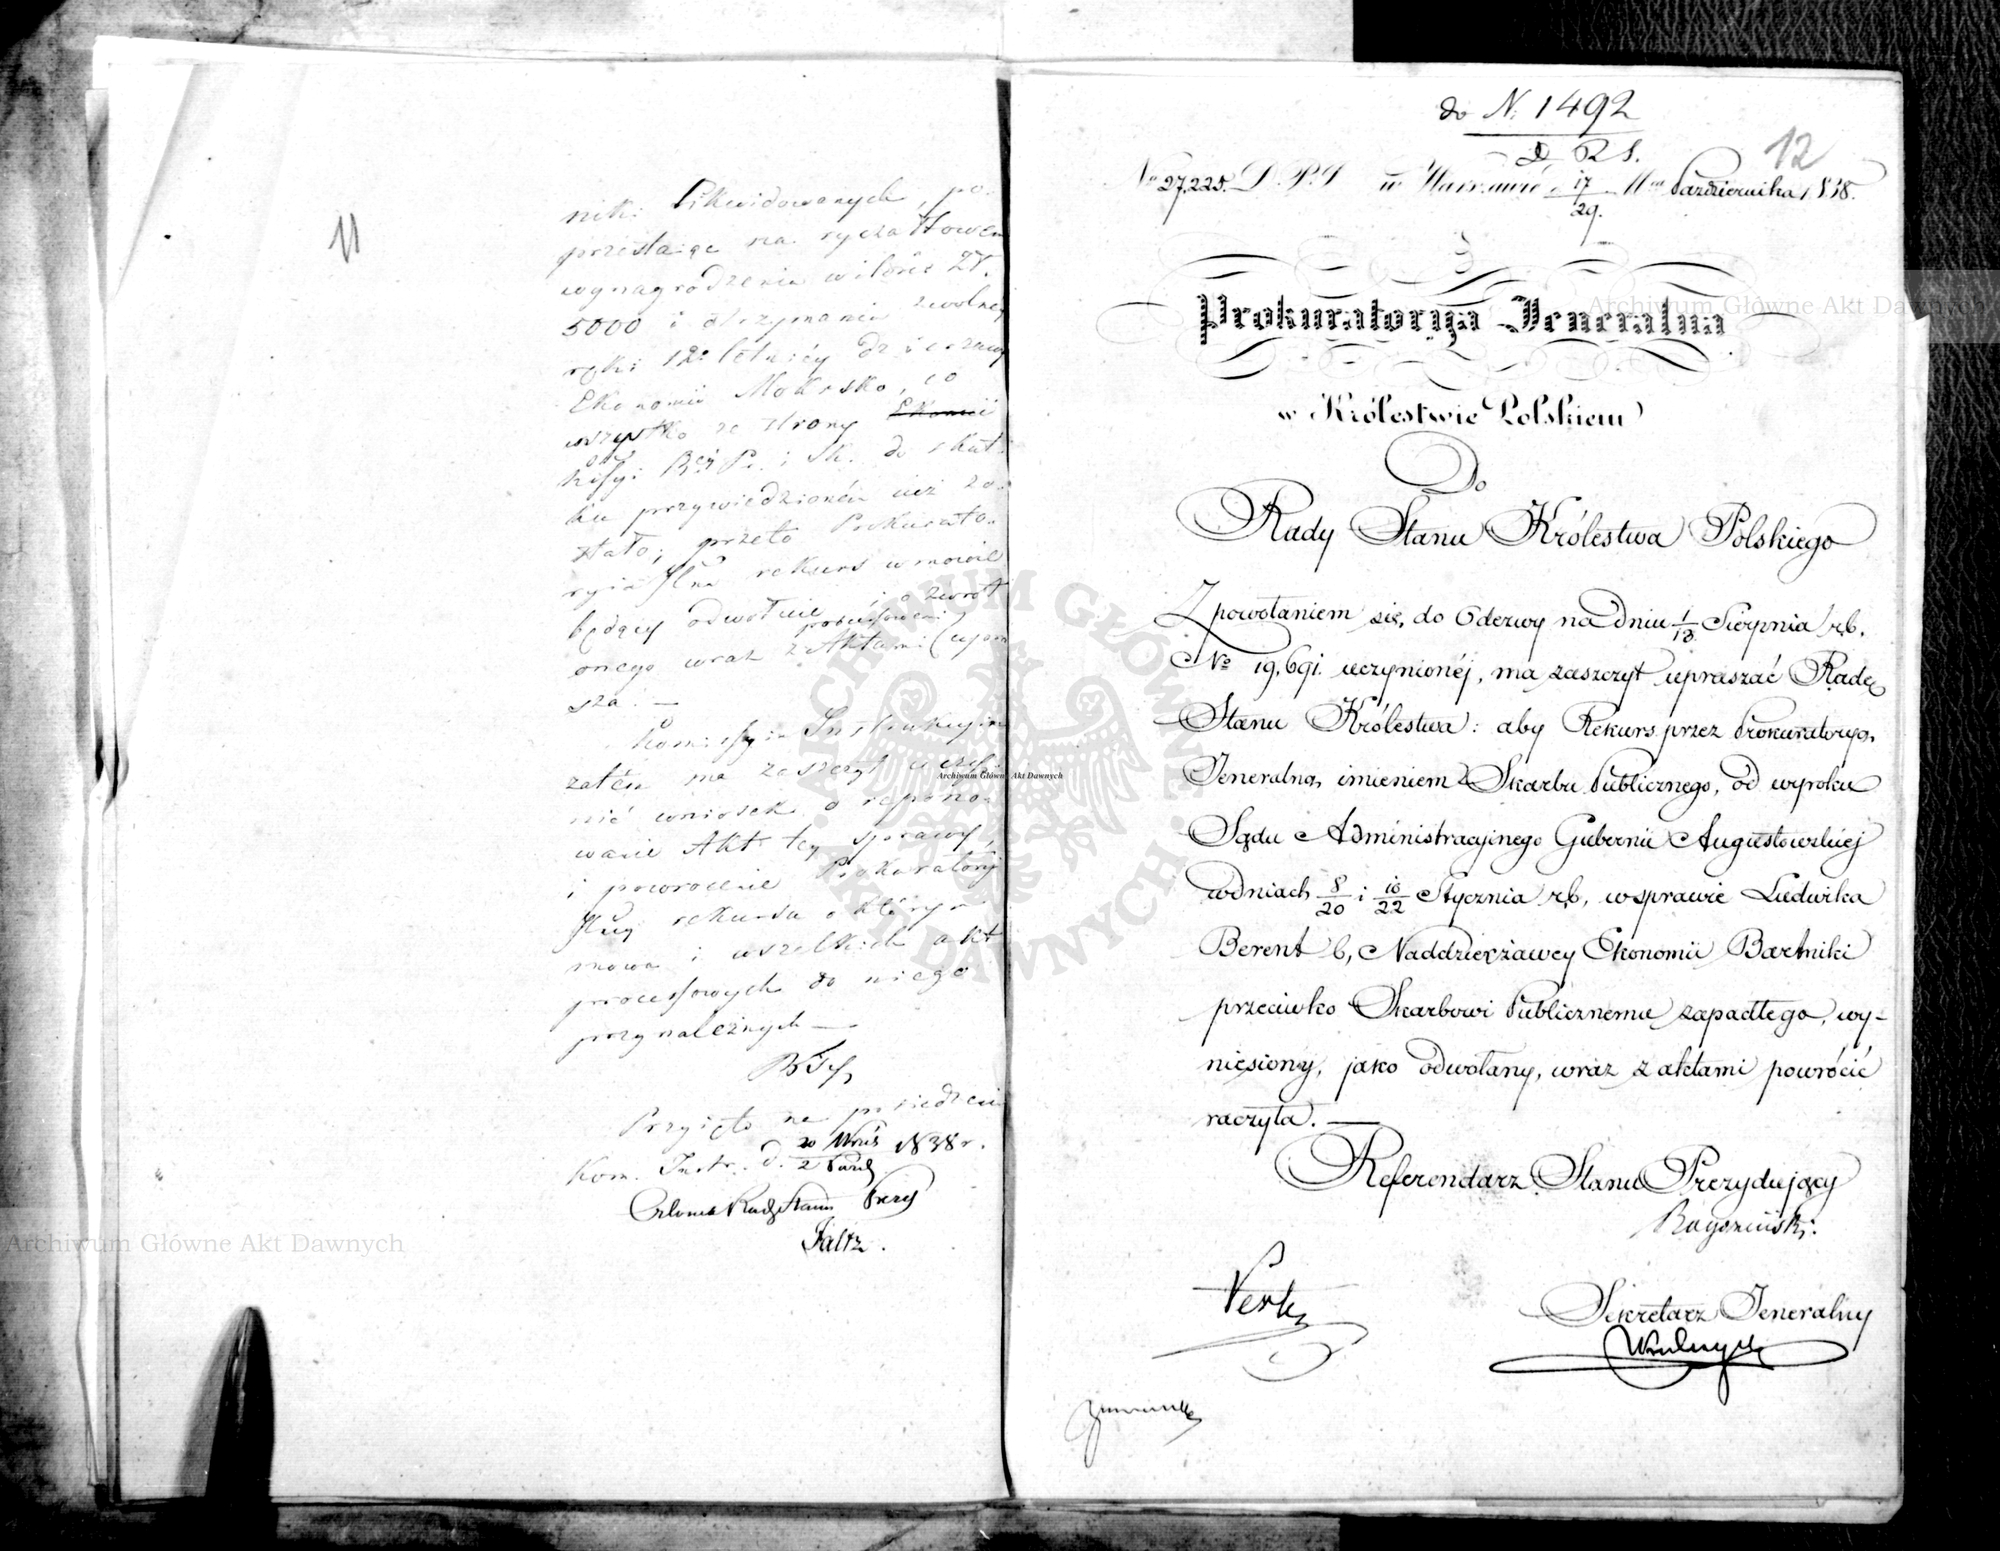 11
nik: likwidowanych, po-
przestając na ryczałtowem
wynagrodzeniu w ilości Zł.
5000 i otrzymaniu zwolney
ręki 12o letniéy dzierżawy
Ekonomii Mokrsko, co
wszystko ze strony
Kissyi Rzą. Pr. i Sk. do skut-
ku przywiedzioném iuż zo-
stało; przeto Prokurato-
rya Jlna rekurs w mowie
będący odwołuie i o zwrót
onego wraz z Aktami processowemi
sza. —
Kommissya Instrukcyjna
zatém ma zaszczyt uczy-
nić wniosek o repono-
wanie Akt tey sprawy,
i powrócenie Prokuratoryi
Jlney rekursu o którym
mowa i wszelkich akt
processowych do niego
przynależnych —
Przyięto na posiedzeniu
Kom. Instr. d. 20 Wrześ / 2 Paźd 1838 r.
Członek Rady Stanu Prezy
Faltz.
do N. 1492
D R S.
12
No 27,225. D. P. J. w Warszawie d. 17/29. Mca Października 1838.
Prokuratorya Jeneralna
w Królestwie Polskiem
Do
Rady Stanu Królestwa Polskiego
Z powołaniem się, do Odezwy na dniu 1/13 Sierpnia r,b.
No 19,691. uczynionéj, ma zaszczyt upraszać Radę
Stanu Królestwa: aby Rekurs przez Prokuratoryą
Jeneralną imieniem Skarbu Publicznego, od wyroku
Sądu Administracyjnego Gubernii Augustowskiej
w dniach 8/20 i 10/22 Stycznia r,b, w sprawie Ludwika
Berent b, Naddzierżawcy Ekonomii Bartniki
przeciwko Skarbowi Publicznemu zapadłego, wy-
niesiony, jako odwołany, wraz z aktami powrócić
raczyła. —
Referendarz Stanu Prezydujący
Sekretarz Jeneralny
Archiwum Główne Akt Dawnych
Archiwum Główne Akt Dawnych
Archiwum Główne Akt Dawnych
ARCHIWUM GŁÓWNE AKT DAWNYCH